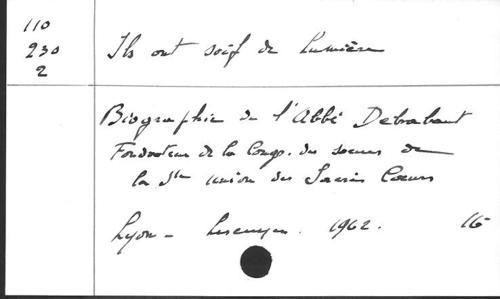 110
230
2
Ils ont soif de lumière
Biographie de l'Abbé Debrabant
Fondateur de la Congr. des soeurs de
la Ste union des Sacrés Coeurs
Lyon - Lescuyer. 1962. 16-